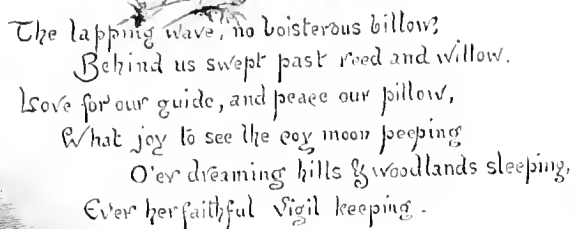 The lapping wave, no boisterous billow,
Behind us swept past reed and willow.
Love for our guide, and peace our pillow,
What joy to see the coy moon peeping
O'er dreaming hills & woodlands sleeping,
Ever her faithful vigil keeping.